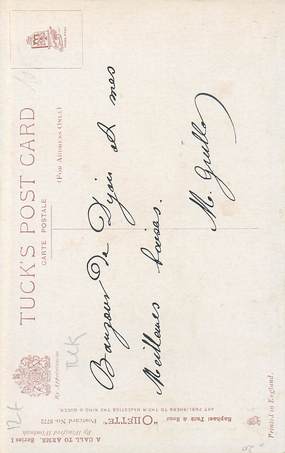 TUCK'S POST CARD
CARTE POSTALE
(FOR ADDRESS ONLY)
By Appointment
Tuck
12f
Bonjour de Dijon et mes
Meilleures baises.
M. Guillo
Raphael Tuck & Sons'
"OILETTE"
Postcard No. 8772
ART PUBLISHERS TO THEIR MAJESTIES THE KING & QUEEN
A CALL TO ARMS. Series I
Printed in England.